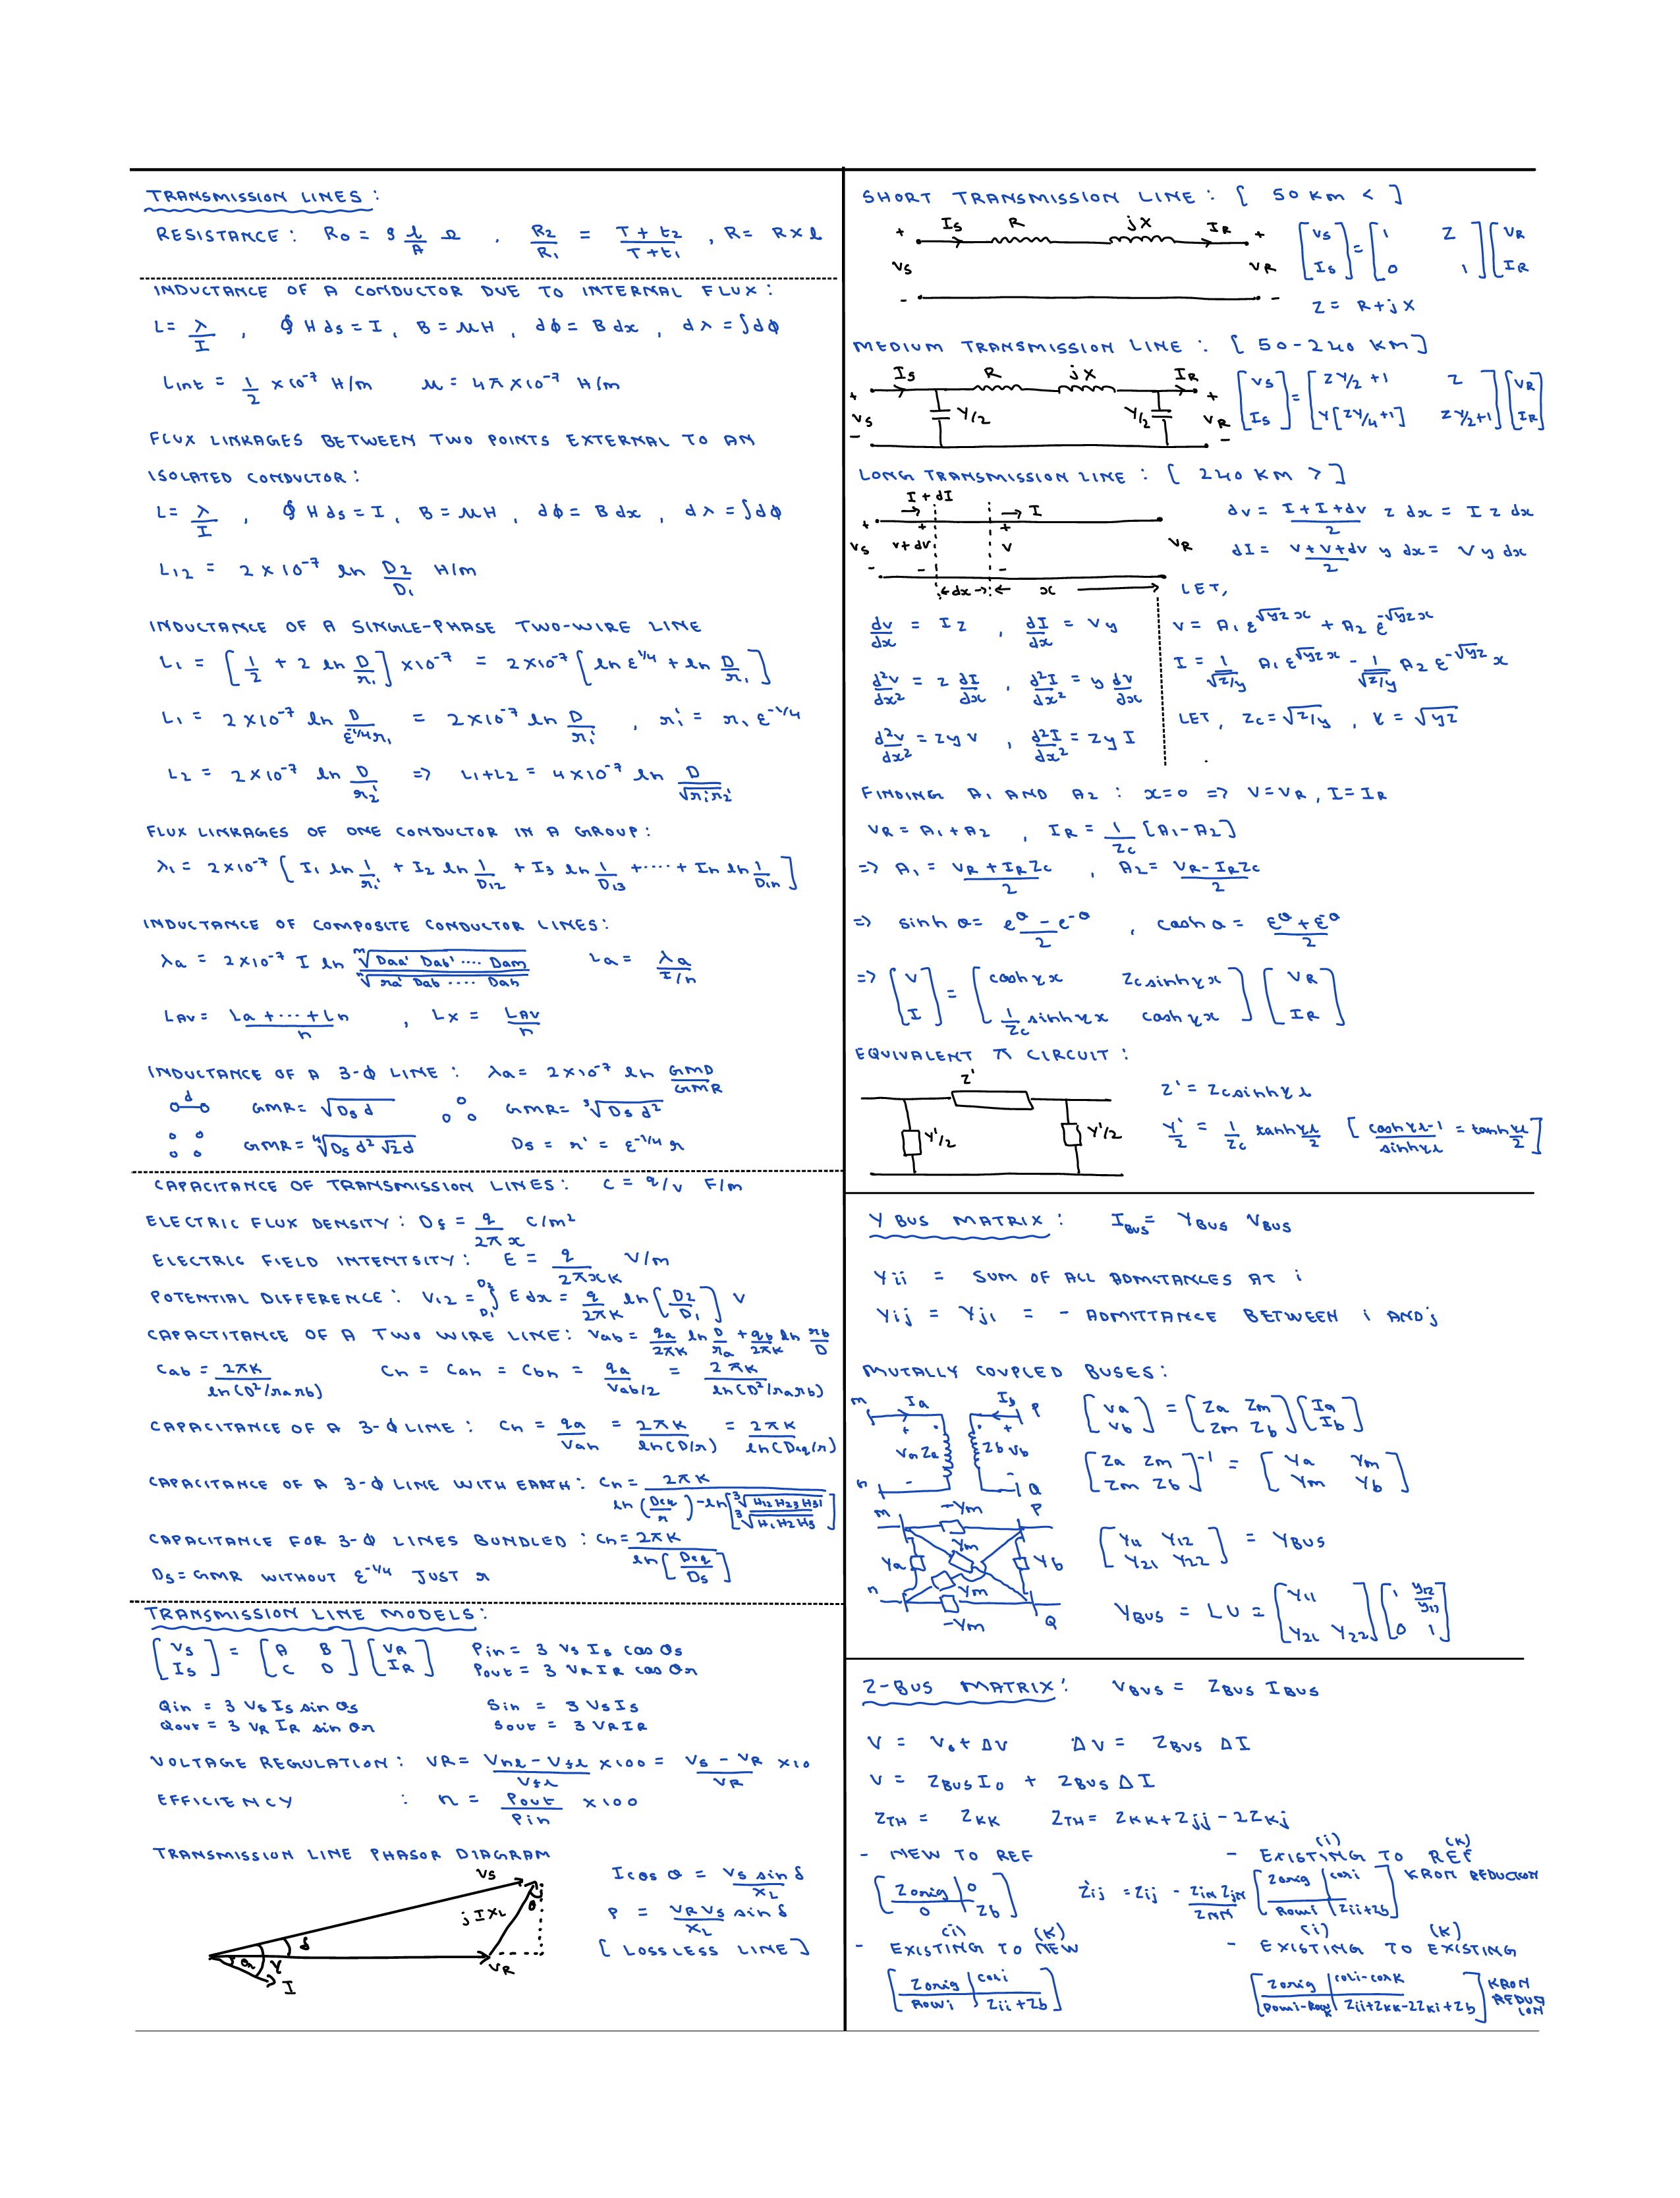 TRANSMISSION LINES :
RESISTANCE : R0 = ρ l/A Ω , R2/R1 = (T + t2)/(T + t1) , R = R × l
INDUCTANCE OF A CONDUCTOR DUE TO INTERNAL FLUX :
L = λ/I , ∮ H ds = I , B = μH , dϕ = B dx , dλ = ∫dϕ
Lint = 1/2 × 10^-7 H/m μ = 4π × 10^-7 H/m
FLUX LINKAGES BETWEEN TWO POINTS EXTERNAL TO AN
ISOLATED CONDUCTOR :
L = λ/I , ∮ H ds = I , B = μH , dϕ = B dx , dλ = ∫dϕ
L12 = 2 × 10^-7 ln D2/D1 H/m
INDUCTANCE OF A SINGLE-PHASE TWO-WIRE LINE
L1 = [1/2 + 2 ln D/r1] × 10^-7 = 2×10^-7 [ln ε^1/4 + ln D/r1]
L1 = 2×10^-7 ln D/(ε^-1/4 r1) = 2×10^-7 ln D/r1' , r1' = r1 ε^-1/4
L2 = 2×10^-7 ln D/r2' => L1+L2 = 4×10^-7 ln D/√(r1' r2')
FLUX LINKAGES OF ONE CONDUCTOR IN A GROUP :
λ1 = 2×10^-7 [I1 ln 1/r1' + I2 ln 1/D12 + I3 ln 1/D13 + ···· + In ln 1/D1n]
INDUCTANCE OF COMPOSITE CONDUCTOR LINES :
λa = 2×10^-7 I ln m√(Daa' Dab' ···· Dam) / n√(ra' Dab ···· Dan) La = λa/(I/n)
LAV = (La + ··· + Ln)/n , LX = LAV/n
INDUCTANCE OF A 3-ϕ LINE : λa = 2×10^-7 ln GMD/GMR
d GMR = √(Ds d) GMR = 3√(Ds d^2)
GMR = 4√(Ds d^2 √2 d) Ds = r' = ε^-1/4 r
CAPACITANCE OF TRANSMISSION LINES : C = q/v F/m
ELECTRIC FLUX DENSITY : Df = q/(2πx) C/m^2
ELECTRIC FIELD INTENTSITY : E = q/(2πxK) V/m
POTENTIAL DIFFERENCE : V12 = ∫D1 D2 E dx = q/(2πK) ln [D2/D1] V
CAPACTITANCE OF A TWO WIRE LINE : Vab = qa/(2πK) ln D/ra + qb/(2πK) ln rb/D
Cab = 2πK/ln(D^2/rarb) Cn = Can = Cbn = qa/(Vab/2) = 2πK/ln(D^2/rarb)
CAPACITANCE OF A 3-ϕ LINE : Cn = qa/Van = 2πK/ln(D/r) = 2πK/ln(Deq/r)
CAPACITANCE OF A 3-ϕ LINE WITH EARTH : Cn = 2πK / (ln (Deq/r) - ln [3√(H12 H23 H31) / 3√(H1 H2 H3)])
CAPACITANCE FOR 3-ϕ LINES BUNDLED : Cn = 2πK / ln [Deq/Ds]
Ds = GMR WITHOUT ε^-1/4 JUST r
TRANSMISSION LINE MODELS :
[Vs Is] = [A B C D] [VR IR] Pin = 3 Vs Is cos θs
Pout = 3 VR IR cos θr
Qin = 3 Vs Is sin θs Sin = 3 Vs Is
Qout = 3 VR IR sin θr Sout = 3 VR IR
VOLTAGE REGULATION : VR = (Vnl - Vfl)/Vfl × 100 = (Vs - VR)/VR × 10
EFFICIENCY : n = Pout/Pin × 100
TRANSMISSION LINE PHASOR DIAGRAM
Vs
j I XL
θ
δ
θr γ
VR
I
I cos θ = Vs sin δ/XL
P = VR Vs/XL sin δ
[ LOSSLESS LINE ]
SHORT TRANSMISSION LINE : [ 50 KM < ]
+ Is R jX IR +
Vs VR
- -
[Vs Is] = [1 Z 0 1] [VR IR]
Z = R + jX
MEDIUM TRANSMISSION LINE : [ 50-240 KM ]
Is R jX IR
+ Vs - Y/2 Y/2 + VR -
[Vs Is] = [ZY/2 +1 Z Y[ZY/4 +1] ZY/2+1] [VR IR]
LONG TRANSMISSION LINE : [ 240 KM > ]
I + dI I
+ Vs - + V+dV - + V - VR
dx x
dv = (I + I + dv)/2 z dx = I z dx
dI = (V + V + dv)/2 y dx = V y dx
LET,
dv/dx = I z , dI/dx = V y
d^2v/dx^2 = z dI/dx , d^2I/dx^2 = y dv/dx
d^2v/dx^2 = zy V , d^2I/dx^2 = zy I
V = A1 ε^√yz x + A2 ε^-√yz x
I = 1/√(z/y) A1 ε^√yz x - 1/√(z/y) A2 ε^-√yz x
LET, Zc = √z/y , γ = √yz
FINDING A1 AND A2 : x=0 => V=VR , I=IR
VR = A1 + A2 , IR = 1/Zc [A1 - A2]
=> A1 = (VR + IR Zc)/2 , A2 = (VR - IR Zc)/2
=> sinh θ = (e^θ - e^-θ)/2 , cosh θ = (ε^θ + ε^-θ)/2
=> [V I] = [cosh γx Zc sinh γx 1/Zc sinh γx cosh γx] [VR IR]
EQUIVALENT π CIRCUIT :
Z'
Y'/2 Y'/2
Z' = Zc sinh γl
Y'/2 = 1/Zc tanh γl/2 [(cosh γl-1)/sinh γl = tanh γl/2]
Y BUS MATRIX : IBUS = YBUS VBUS
Yii = SUM OF ALL ADMSTANCES AT i
Yij = Yji = - ADMITTANCE BETWEEN i AND j
MUTALLY COUPLED BUSES :
m Ia Ib P
+ Va Za - + Zb Vb -
n Q
[Va Vb] = [Za Zm Zm Zb] [Ia Ib]
[Za Zm Zm Zb]^-1 = [Ya Ym Ym Yb]
m -Ym P
Ya Ym Yb
n Ym
-Ym Q
[Y11 Y12 Y21 Y22] = YBUS
YBUS = LU = [Y11 Y21 Y22] [1 Y12/Y11 0 1]
Z-BUS MATRIX : VBUS = ZBUS IBUS
V = V0 + ΔV ΔV = ZBUS ΔI
V = ZBUS I0 + ZBUS ΔI
ZTH = ZKK ZTH = ZKK + Zjj - 2ZKj
- NEW TO REF
[Zorig 0 0 Zb]
- EXISTING (i) TO REF (K)
Zij = Zij - ZiN ZjN/ZNN [Zorig coli Rowi Zii+Zb] KRON REDUCTION
- EXISTING (i) TO NEW (K)
[Zorig coli Rowi Zii+Zb]
- EXISTING (i) TO EXISTING (K)
[Zorig coli-colK Rowi-RowK Zii+ZKK-2ZKi+Zb] KRON REDUCTION